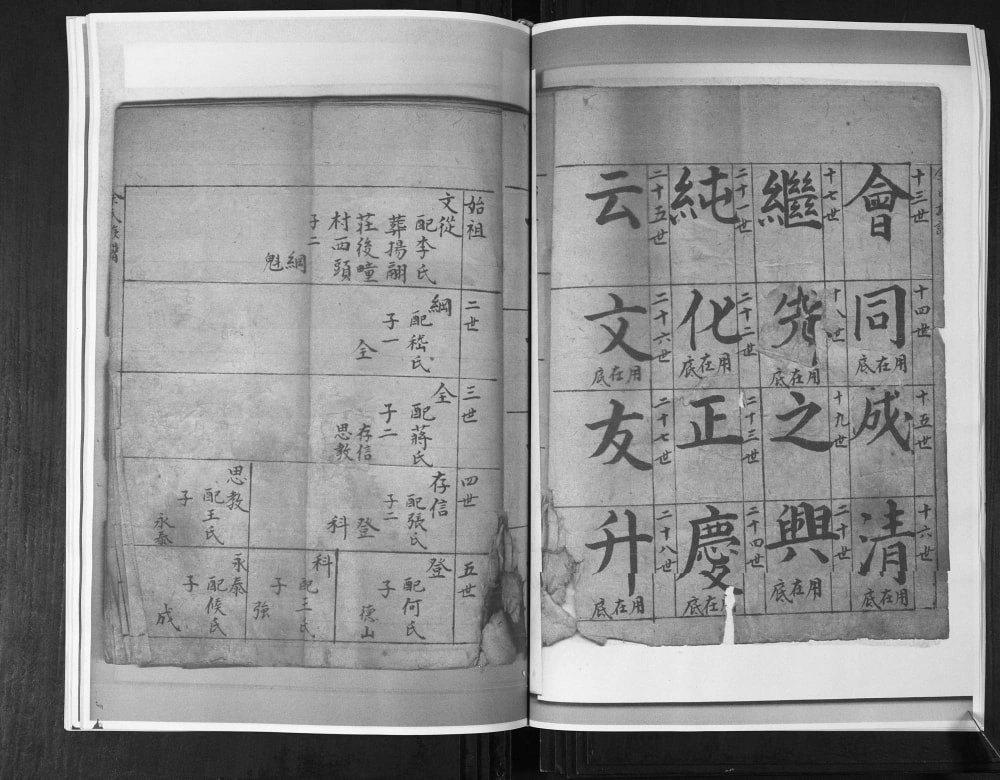 十三世
會
十四世
同
用在底
十五世
成
十六世
清
用在底
十七世
繼
十八世
用在底
十九世
之
二十世
興
用在底
二十一世
純
二十二世
化
用在底
二十三世
正
二十四世
慶
用在底
二十五世
云
二十六世
文
用在底
二十七世
友
二十八世
升
用在底
始祖
文從
配李氏
葬揚嗣
莊後疃
村西頭
子二
綱
魁
二世
綱
配嵇氏
子一
全
三世
全
配蔣氏
子二
存信
思教
四世
存信
配張氏
子二
登
科
思教
配王氏
子
永泰
五世
登
配何氏
子
德山
科
配王氏
子
強
永泰
配侯氏
子
成